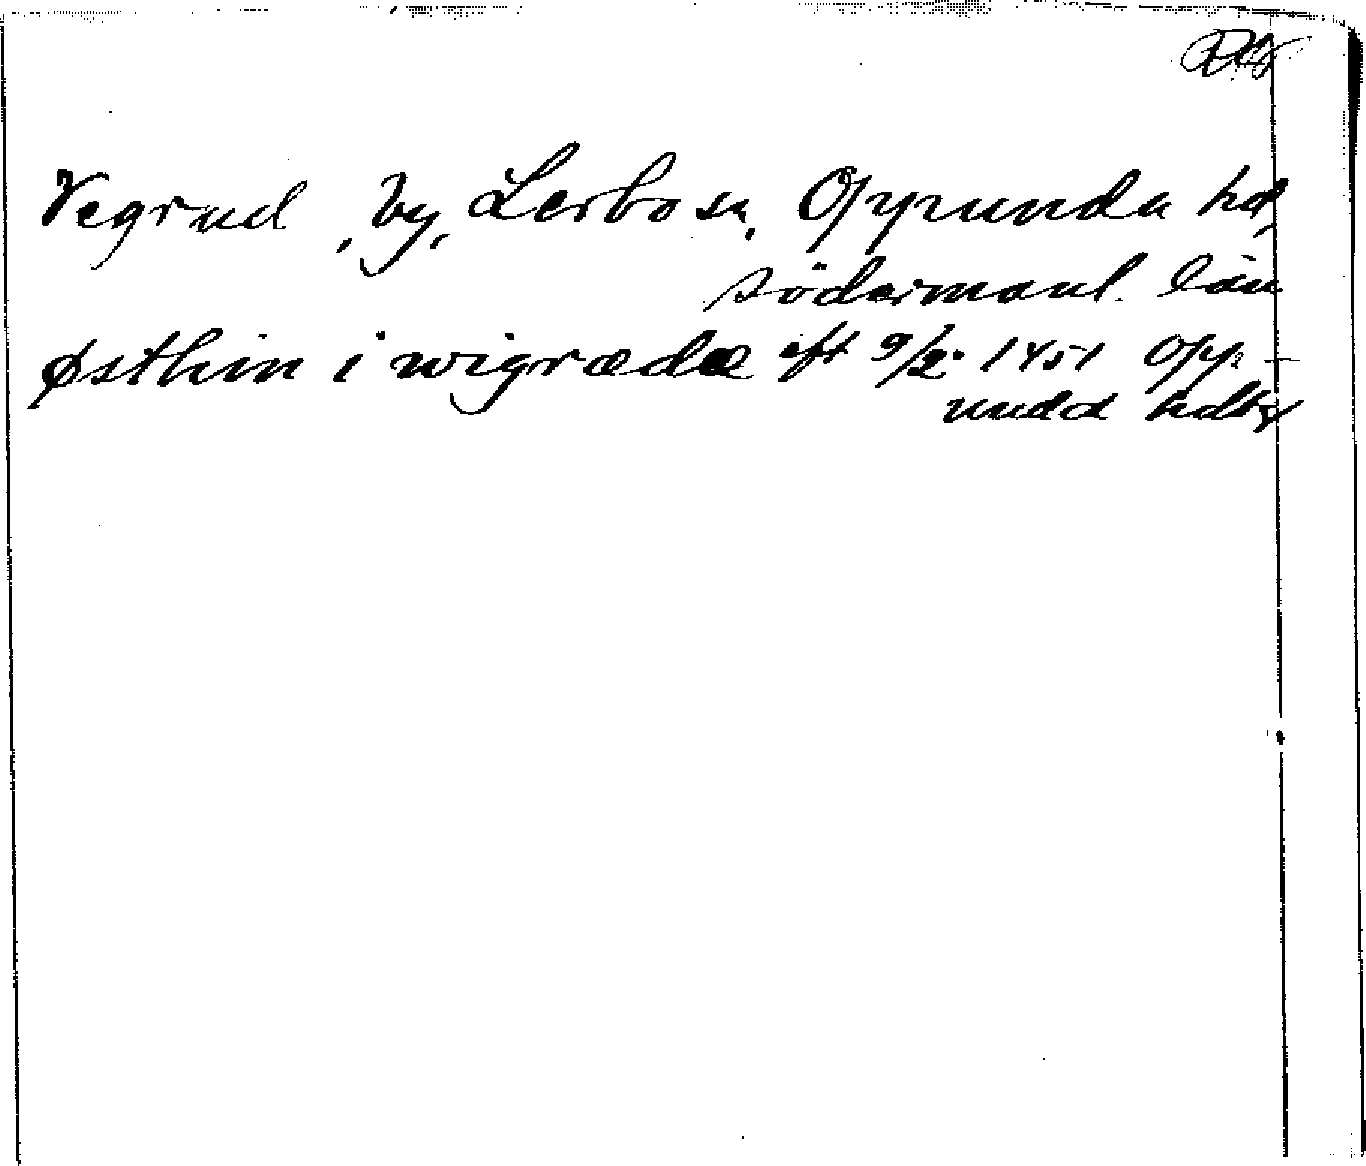 Vegrud, by, Lerbo sn, Oppunda hd,
Södermanl. län
Østhin i wigrædæ eft 9/2 1451 Opp-
undd hdbr